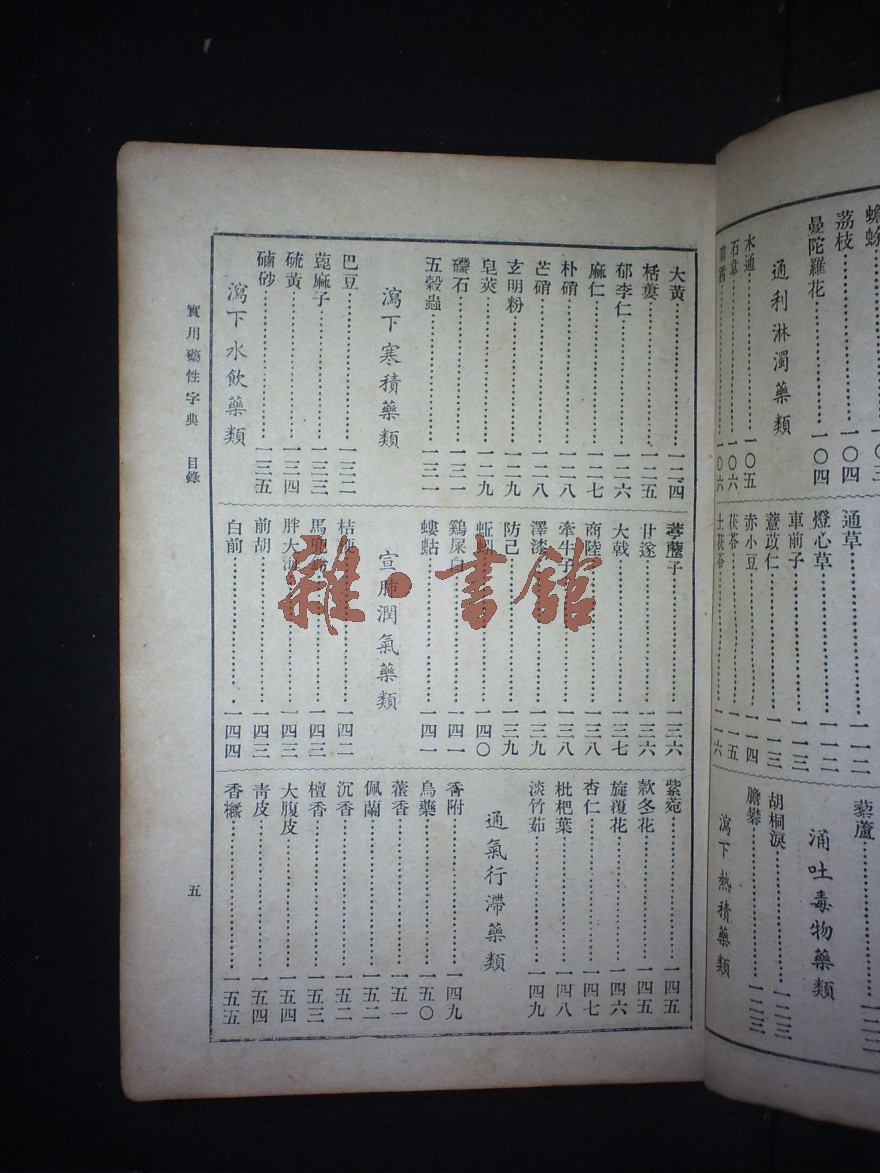 蟾蜍⋯⋯一〇三
荔枝⋯⋯一〇四
曼陀羅花⋯⋯一〇四
通利淋濁藥類
木通⋯⋯一〇五
石韋⋯⋯一〇六
一〇六
通草⋯⋯一一二
燈心草⋯⋯一一二
車前子⋯⋯一一三
薏苡仁⋯⋯一一三
赤小豆⋯⋯一一四
茯苓⋯⋯一一五
土茯苓⋯⋯一一六
藜蘆⋯⋯一二二
涌吐毒物藥類
胡桐淚⋯⋯一二三
膽礬⋯⋯一二三
瀉下熱積藥類
大黃⋯⋯一二四
栝蔞⋯⋯一二五
郁李仁⋯⋯一二六
麻仁⋯⋯一二七
朴硝⋯⋯一二八
芒硝⋯⋯一二八
玄明粉⋯⋯一二九
皂莢⋯⋯一二九
礞石⋯⋯一三一
五穀蟲⋯⋯一三一
瀉下寒積藥類
巴豆⋯⋯一三二
蓖麻子⋯⋯一三三
硫黃⋯⋯一三四
硇砂⋯⋯一三五
瀉下水飲藥類
葶藶子⋯⋯一三六
甘遂⋯⋯一三六
大戟⋯⋯一三七
商陸⋯⋯一三八
牽牛子⋯⋯一三八
澤漆⋯⋯一三九
防己⋯⋯一三九
蚯蚓⋯⋯一四〇
鷄屎白⋯⋯一四一
螻蛄⋯⋯一四一
宣肺潤氣藥類
桔梗⋯⋯一四二
馬兜鈴⋯⋯一四三
胖大海⋯⋯一四三
前胡⋯⋯一四三
白前⋯⋯一四四
紫菀⋯⋯一四五
款冬花⋯⋯一四五
旋覆花⋯⋯一四六
杏仁⋯⋯一四七
枇杷葉⋯⋯一四八
淡竹茹⋯⋯一四九
通氣行滯藥類
香附⋯⋯一四九
烏藥⋯⋯一五〇
藿香⋯⋯一五一
佩蘭⋯⋯一五二
沉香⋯⋯一五二
檀香⋯⋯一五三
大腹皮⋯⋯一五四
靑皮⋯⋯一五四
香櫞⋯⋯一五五
實用藥性字典 目錄
五
雜·書館